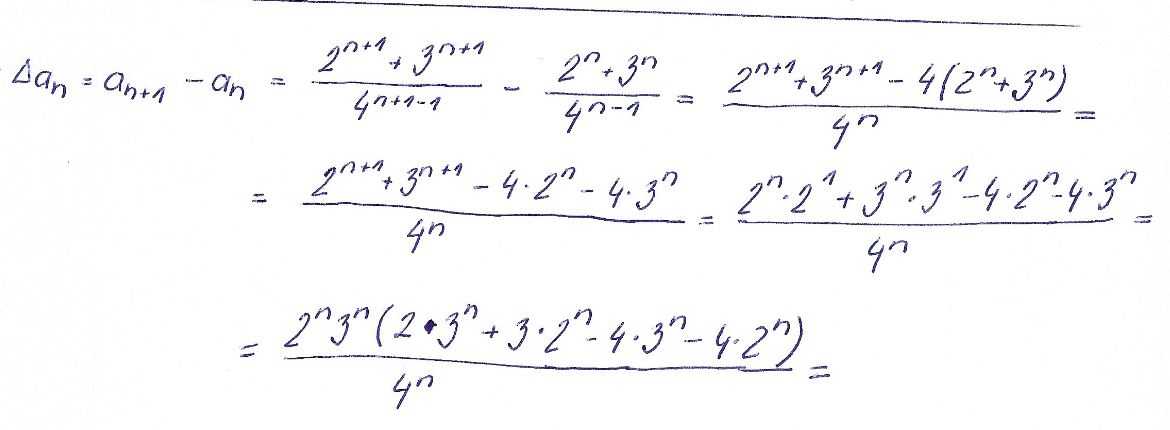 Δaₙ = aₙ₊₁ - aₙ = (2^(n+1) + 3^(n+1))/(4^(n+1-1)) - (2^n + 3^n)/(4^(n-1)) = (2^(n+1) + 3^(n+1) - 4(2^n + 3^n))/(4^n) =
= (2^(n+1) + 3^(n+1) - 4·2^n - 4·3^n)/(4^n) = (2^n·2^1 + 3^n·3^1 - 4·2^n - 4·3^n)/(4^n) =
= (2^n 3^n (2·3^n + 3·2^n - 4·3^n - 4·2^n))/(4^n) =